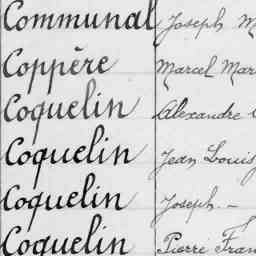 Communal Joseph M
Coppère Marcel Mar
Coquelin Alexandre
Coquelin Jean Louis
Coquelin Joseph –
Coquelin Pierre Fran